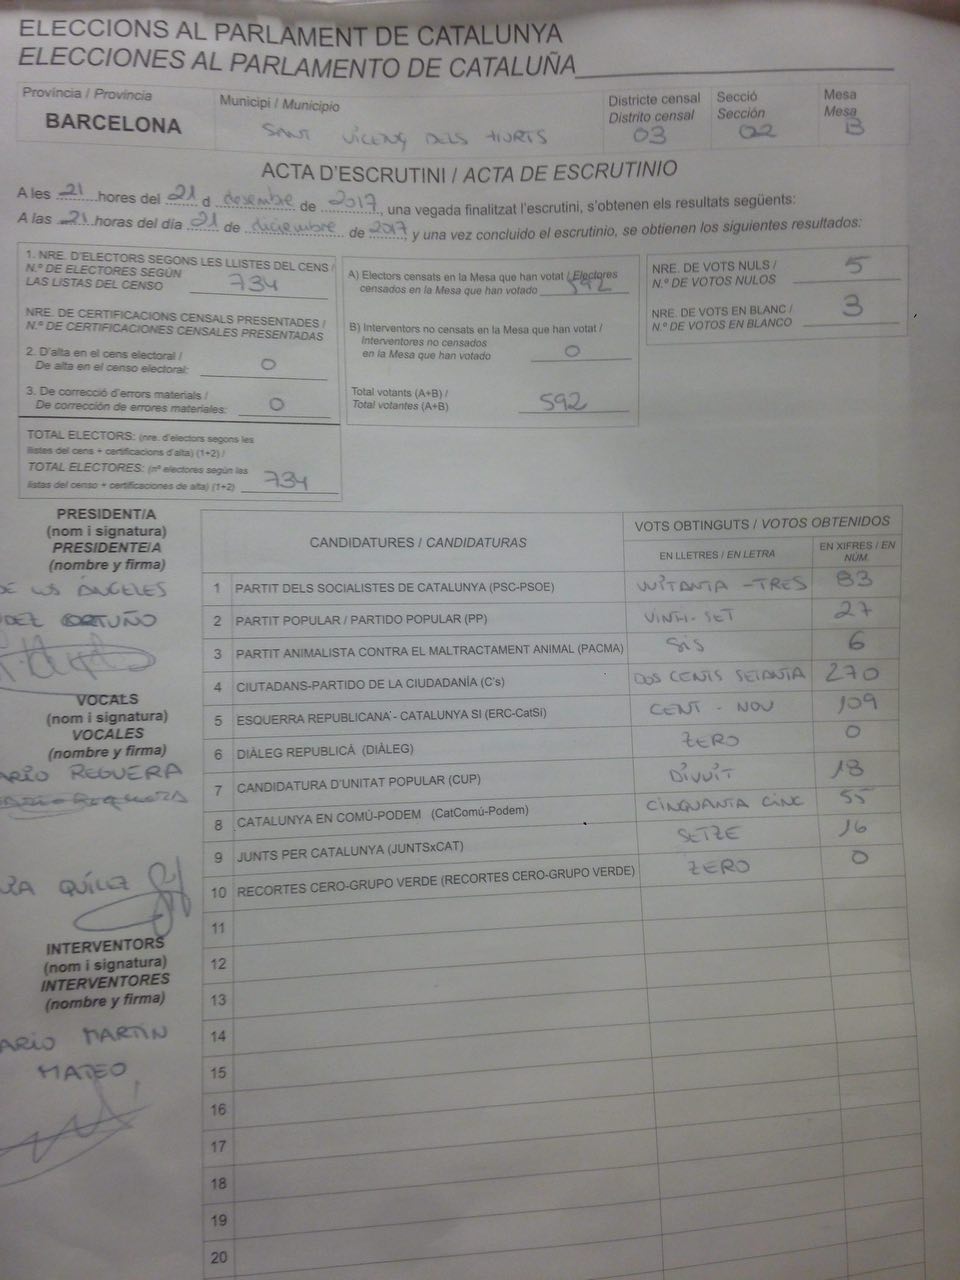 ELECCIONS AL PARLAMENT DE CATALUNYA
ELECCIONES AL PARLAMENTO DE CATALUÑA
Província / Provincia
BARCELONA
Municipi / Municipio
SANT VICENÇ DELS HORTS
Districte censal
Distrito censal
03
Secció
Sección
02
Mesa
Mesa
B
ACTA D'ESCRUTINI / ACTA DE ESCRUTINIO
A les 21 hores del 21 d desembre de 2017, una vegada finalitzat l'escrutini, s'obtenen els resultats següents:
A las 21 horas del día 21 de diciembre de 2017, y una vez concluido el escrutinio, se obtienen los siguientes resultados:
1. NRE. D'ELECTORS SEGONS LES LLISTES DEL CENS /
N.º DE ELECTORES SEGÚN
LAS LISTAS DEL CENSO 734
NRE. DE CERTIFICACIONS CENSALS PRESENTADES /
N.º DE CERTIFICACIONES CENSALES PRESENTADAS
2. D'alta en el cens electoral /
De alta en el censo electoral: 0
3. De correcció d'errors materials /
De corrección de errores materiales: 0
TOTAL ELECTORS: (nre. d'electors segons les
llistes del cens + certificacions d'alta) (1+2) /
TOTAL ELECTORES: (nº electores según las
listas del censo + certificaciones de alta) (1+2) 734
A) Electors censats en la Mesa que han votat / Electores
censados en la Mesa que han votado 592
B) Interventors no censats en la Mesa que han votat /
Interventores no censados
en la Mesa que han votado 0
Total votants (A+B) /
Total votantes (A+B) 592
NRE. DE VOTS NULS /
N.º DE VOTOS NULOS 5
NRE. DE VOTS EN BLANC /
N.º DE VOTOS EN BLANCO 3
PRESIDENT/A
(nom i signatura)
PRESIDENTE/A
(nombre y firma)
DE LOS ÁNGELES
ORTUÑO
VOCALS
(nom i signatura)
VOCALES
(nombre y firma)
REGUERA
QUÍLEZ
INTERVENTORS
(nom i signatura)
INTERVENTORES
(nombre y firma)
MARTÍN
MATEO
CANDIDATURES / CANDIDATURAS
VOTS OBTINGUTS / VOTOS OBTENIDOS
EN LLETRES / EN LETRA
EN XIFRES / EN
NÚM.
1 PARTIT DELS SOCIALISTES DE CATALUNYA (PSC-PSOE) VUITANTA-TRES 83
2 PARTIT POPULAR / PARTIDO POPULAR (PP) VINT-I-SET 27
3 PARTIT ANIMALISTA CONTRA EL MALTRACTAMENT ANIMAL (PACMA) SIS 6
4 CIUTADANS-PARTIDO DE LA CIUDADANÍA (C's) DOS CENTS SETANTA 270
5 ESQUERRA REPUBLICANA - CATALUNYA SI (ERC-CatSí) CENT - NOU 109
6 DIÀLEG REPUBLICÀ (DIÀLEG) ZERO 0
7 CANDIDATURA D'UNITAT POPULAR (CUP) DIVUIT 18
8 CATALUNYA EN COMÚ-PODEM (CatComú-Podem) CINQUANTA CINC 55
9 JUNTS PER CATALUNYA (JUNTSxCAT) SETZE 16
10 RECORTES CERO-GRUPO VERDE (RECORTES CERO-GRUPO VERDE) ZERO 0
11
12
13
14
15
16
17
18
19
20